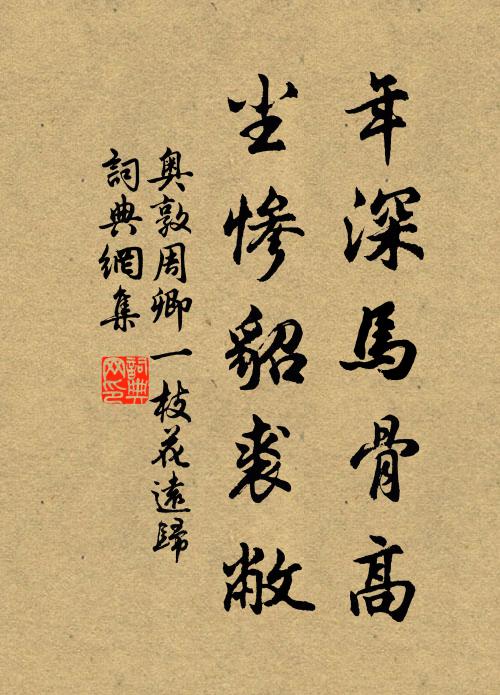 年深馬骨高
尘慘貂裘敝
奧敦周卿一枝花遠歸
詞典網集
詞典網印